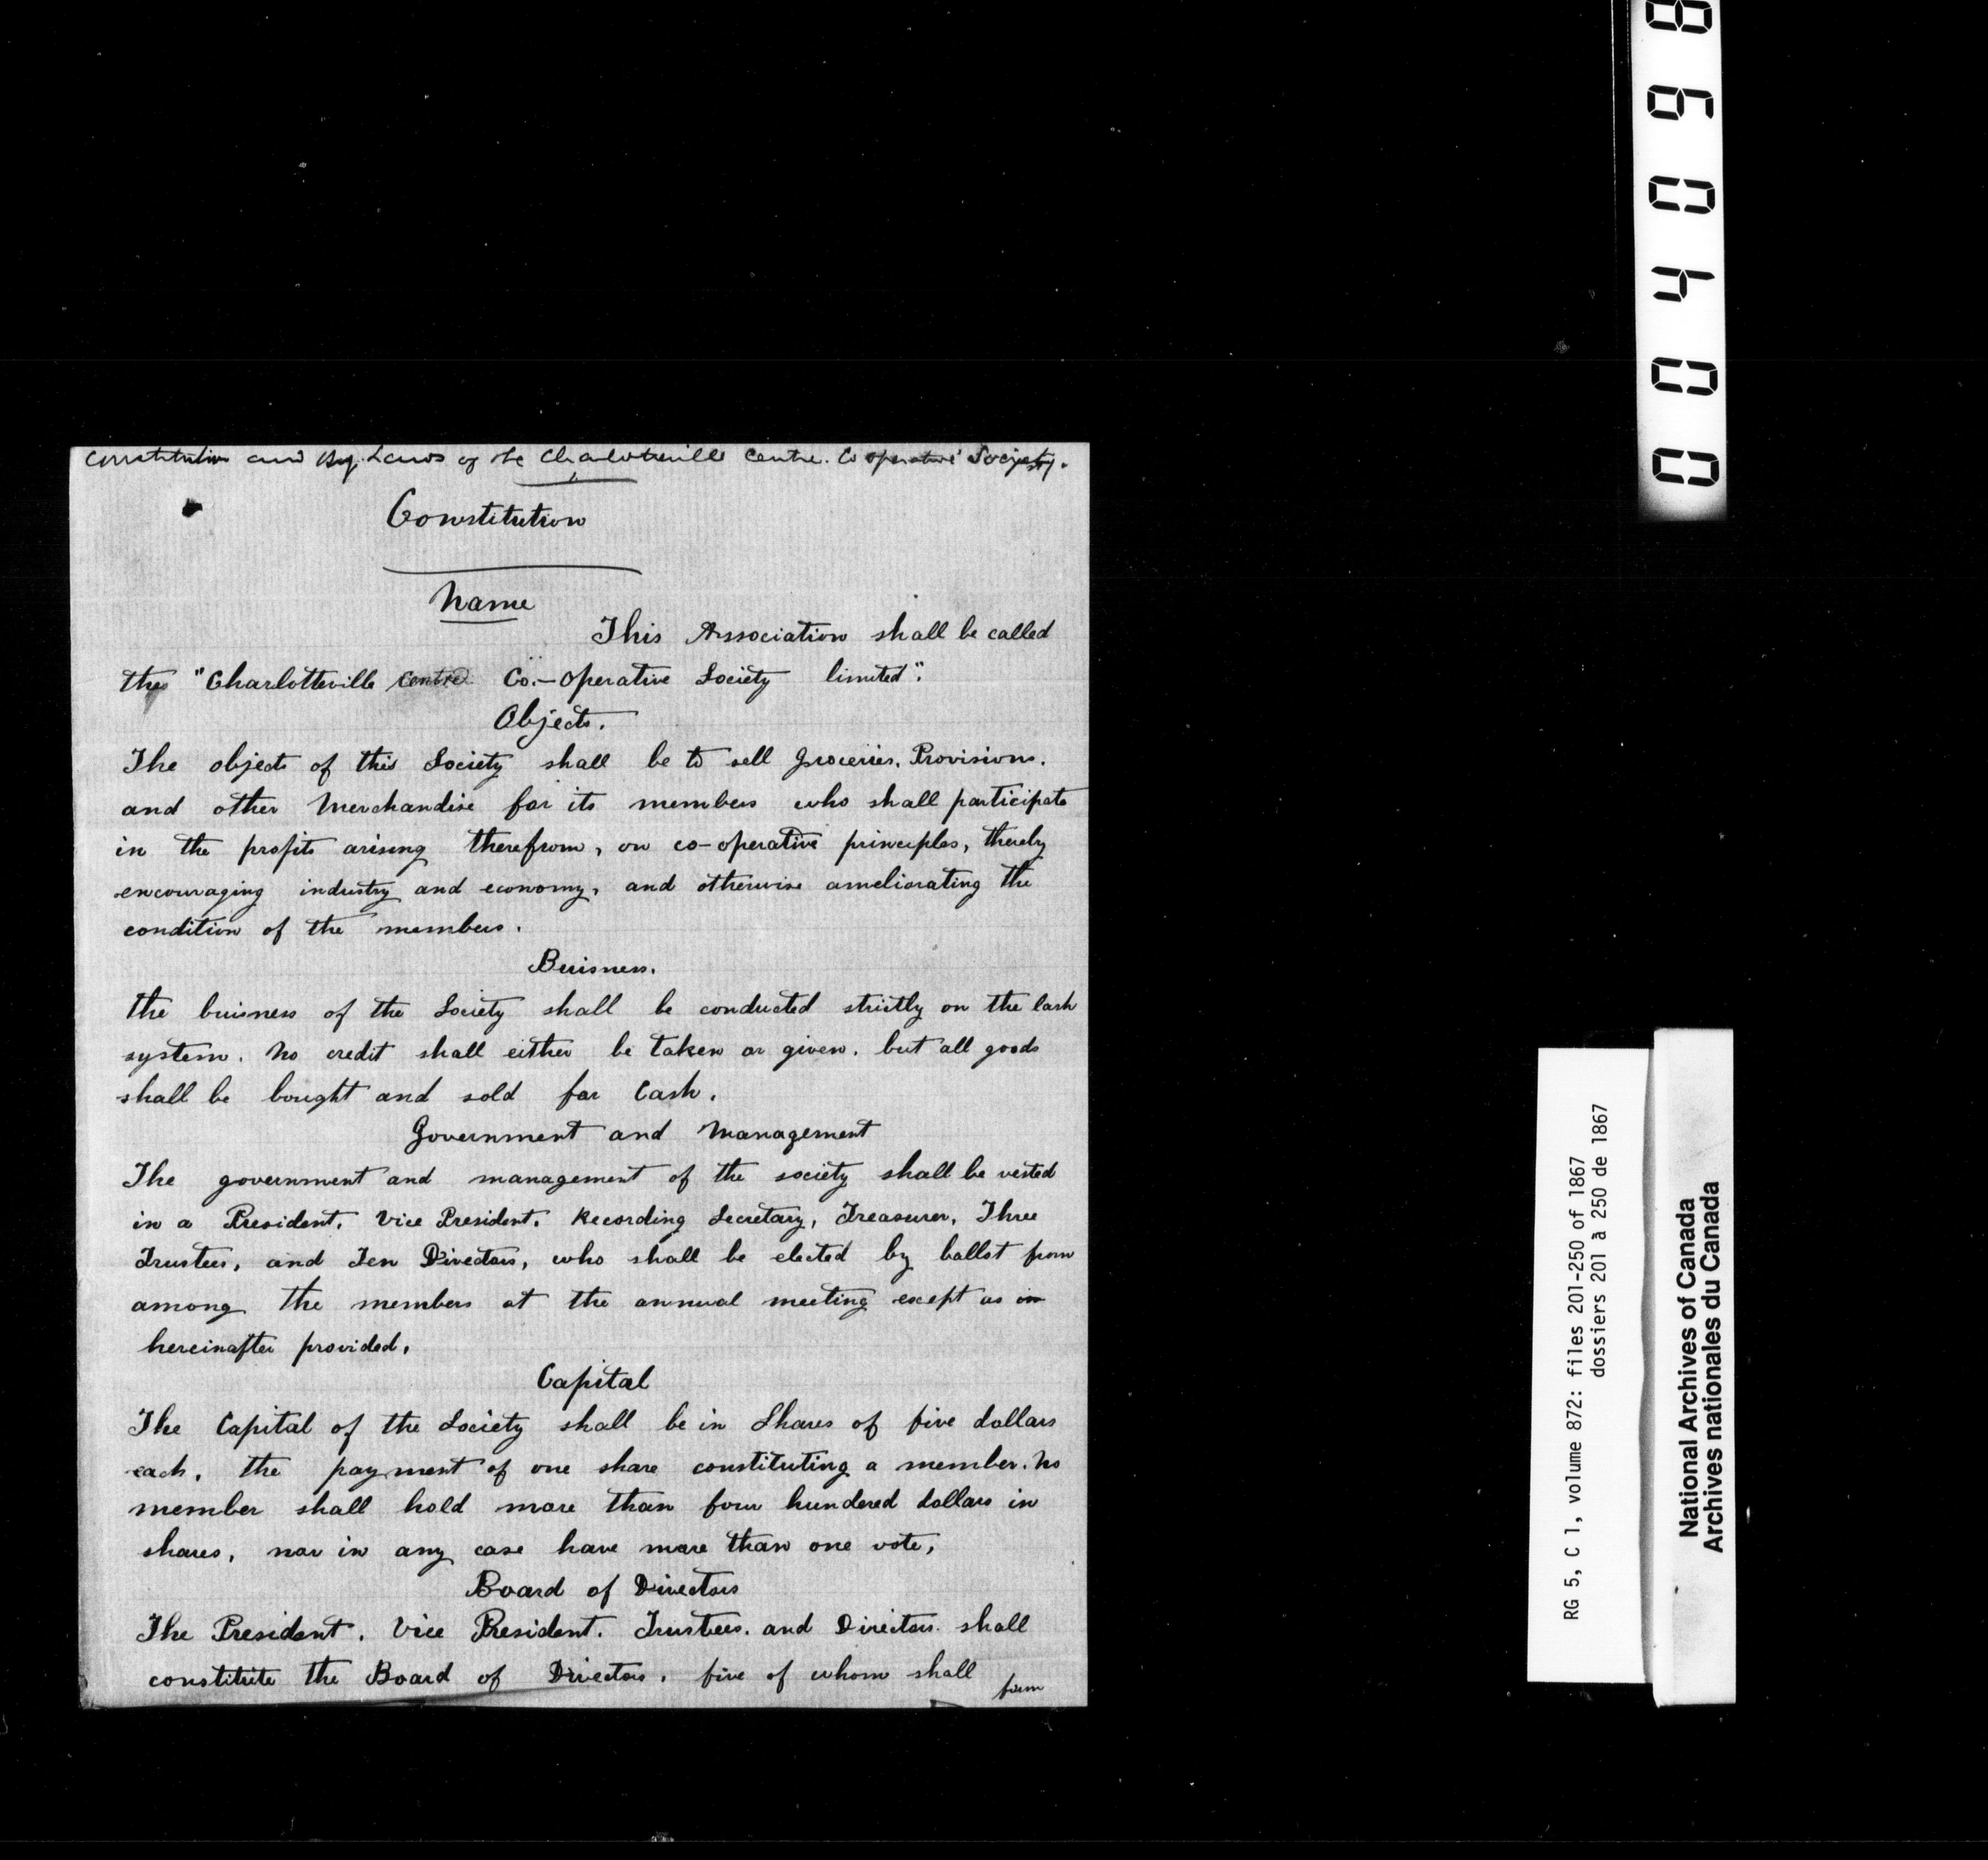 Constitution and By. Laws of the Charlotteville Centre. Co operative Society.
Constitution
Name
This Association shall be called
the "Charlotteville Centre Co.-Operative Society limited".
Objects.
The objects of this Society shall be to sell Groceries, Provisions.
and other Merchandise for its members who shall participate
in the profits arising therefrom, on co-operative principles, thereby
encouraging industry and economy, and otherwise ameliorating the
condition of the members.
Buisness.
the buisness of the Society shall be conducted strictly on the Cash
system. No credit shall either be taken or given. but all goods
shall be bought and sold for Cash.
Government and Management
The government and management of the society shall be vested
in a President, Vice President, Recording Secretary, Treasurer, Three
Trustees, and Ten Directors, who shall be elected by ballot from
among the members at the annual meeting except as in
hereinafter provided,
Capital
The Capital of the Society shall be in Shares of five dollars
each, the payment of one share constituting a member. No
member shall hold more than four hundered dollars in
shares, nor in any case have more than one vote,
Board of Directors
The President. Vice President. Trustees. and Directors. shall
constitute the Board of Directors. five of whom shall
form
004098
RG 5, C 1, volume 872: files 201-250 of 1867
dossiers 201 à 250 de 1867
National Archives of Canada
Archives nationales du Canada